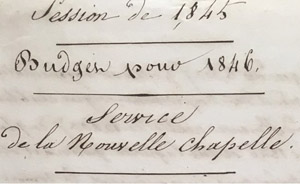 Session de 1845
Budget pour 1846.
Service
de la Nouvelle Chapelle.